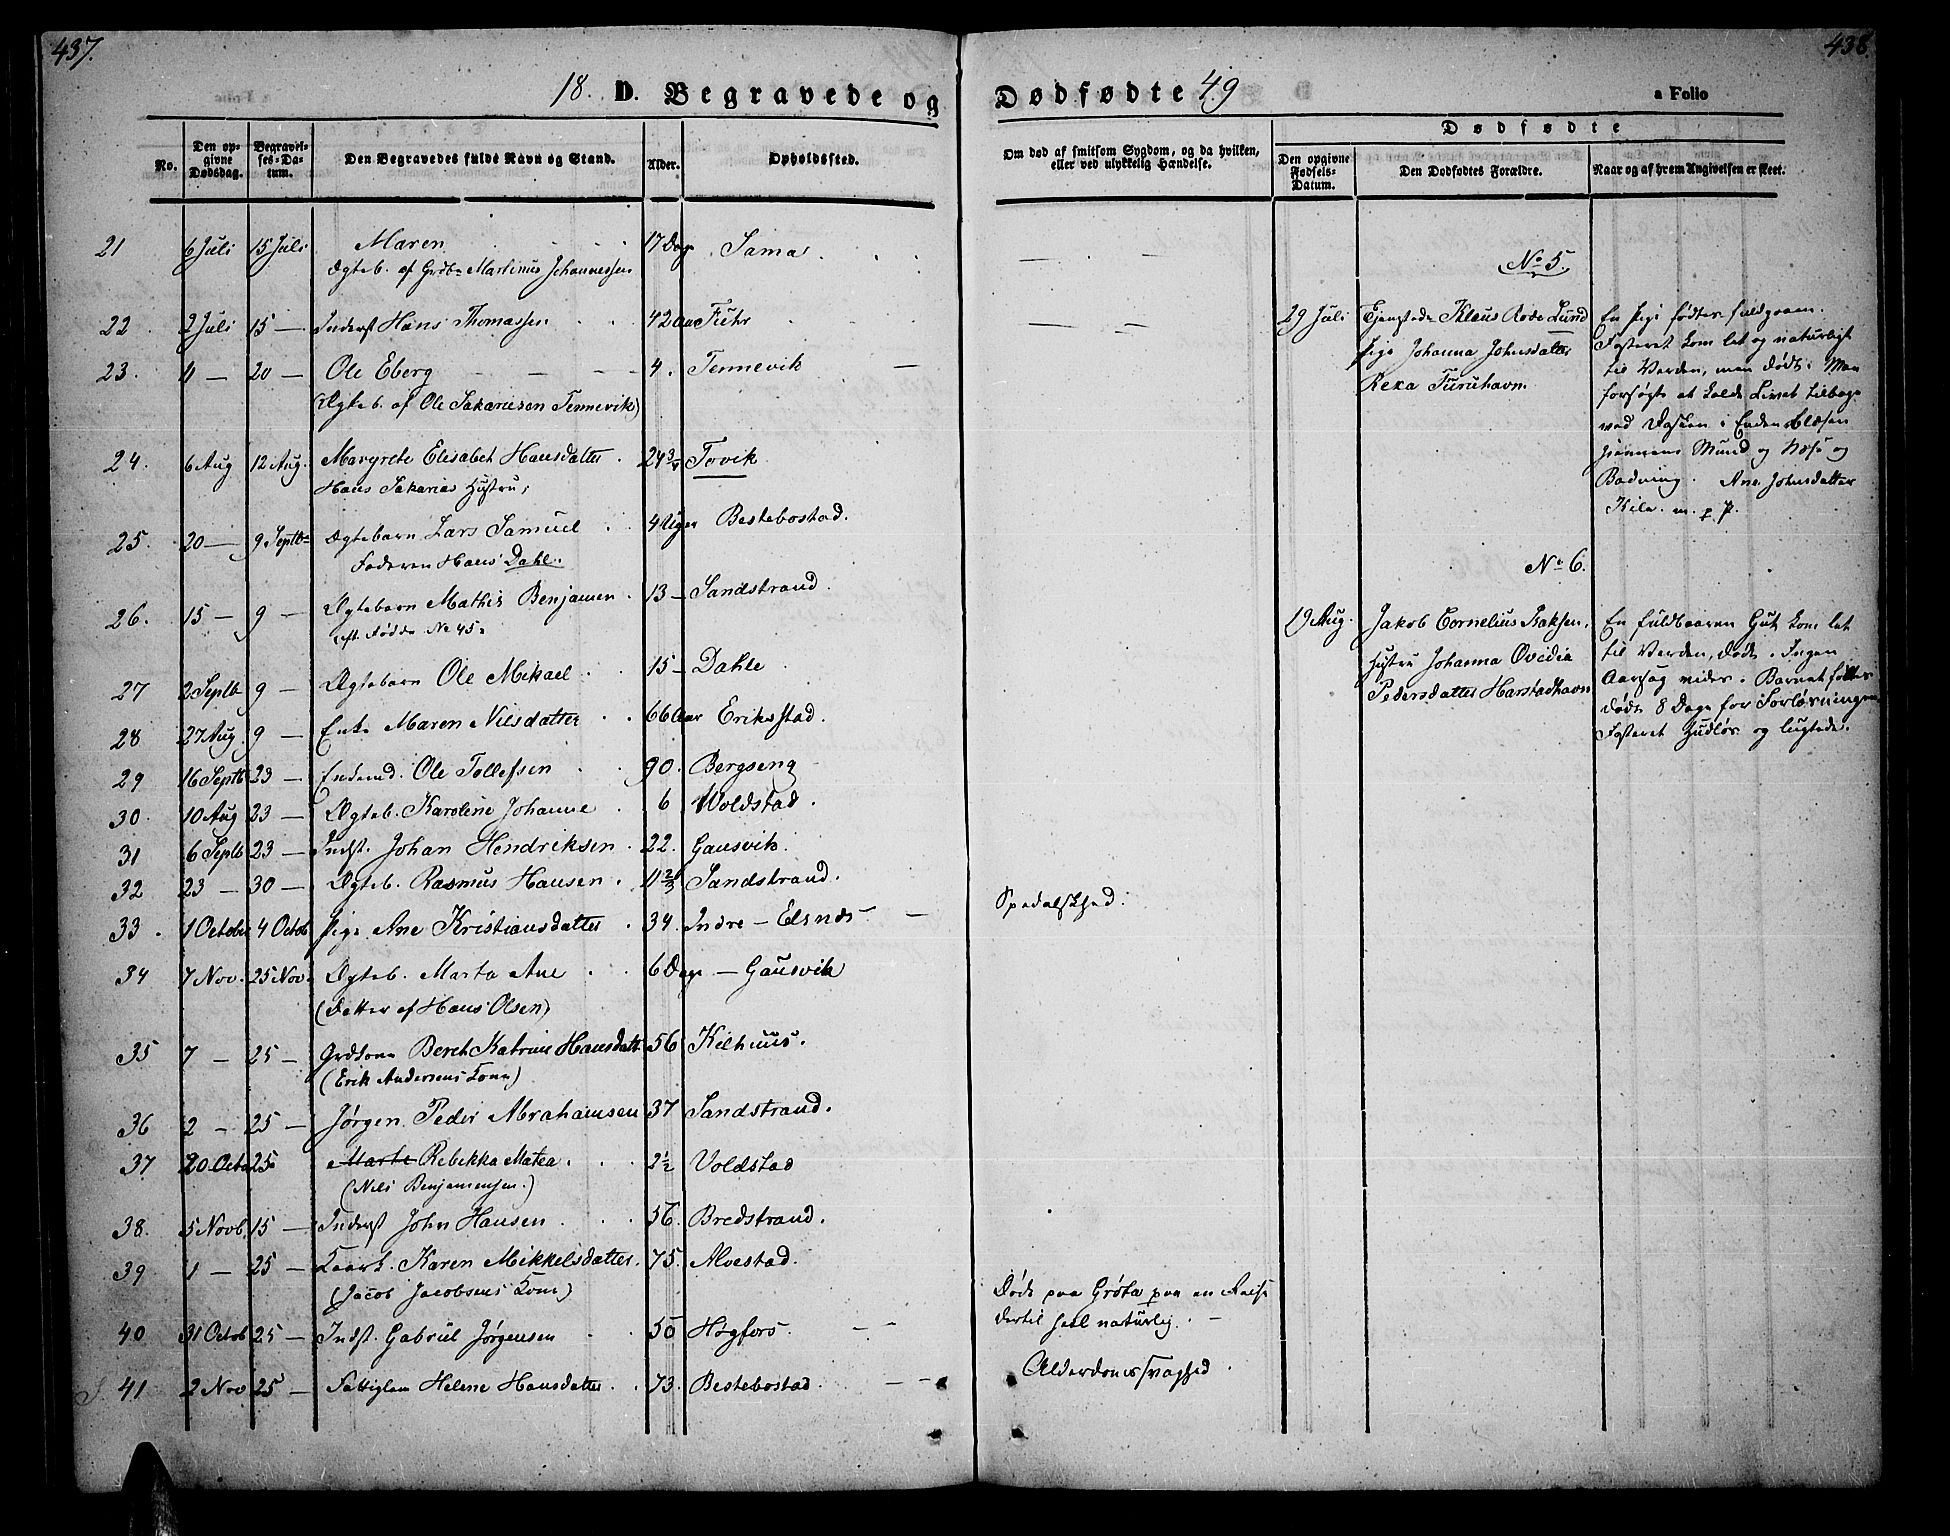 437.
438.
18. D. Begravede og Dødfødte 49
a Folio
No.
Den opgivne Dødsdag.
Begravelses-Datum.
Den Begravedes fulde Navn og Stand.
Alder.
Opholdssted.
Om død af smitsom Sygdom, og da hvilken, eller ved ulykkelig Hændelse.
Dødfødte
Den opgivne Fødsels-Datum.
Den Dødfødtes Forældre.
Naar og af hvem Angivelsen er skeet.
21 6 Juli 15 Juli Maren 17 Dage Sama
Ægteb. af Grdbr Martinus Johannessen
22. 2 Juli 15 — Inderst Hans Thomassen 42 Aar Fuhr
23. 11 — 20 — Ole Eberg 4. Tennevik
(Ægteb. af Ole Sakariesen Tennevik)
24. 6 Aug 12 Aug. Margrete Elisabet Hansdatter 24 3/4 Tovik
Hans Sakarias Hustru;
25. 20 — 9 Septb Ægtebarn Lars Samuel 4 Uger Bestebostad.
Faderen Hans Dahl.
26. 15 — 9 — Ægtebarn Mathis Benjamin 13 — Sandstrand.
cfr. Fødde No 45.
27 2 Septb 9 — Ægtebarn Ole Mikael 15 — Dahle
28 27 Aug 9 — Enke Maren Nilsdatter 66 Aar Eriksstad.
29 16 Septb 23 — Ole Tollefsen 90. Bergseng
30. 10 Aug 23 — Ægteb. Karoline Johanne 6 Woldstad.
31 6 Septb 23 — Indst. Johan Hendriksen 22. Gausvik.
32 23 — 30 — Ægteb. Rasmus Hansen. 11 2/3 Sandstrand.
33. 1 Octobr 4 Octob Pige Ane Kristiansdatter 34. Indre — Elsnes — Spedalskhed.
34 7 Nov. 25 Nov. Ægteb. Marta Ane 6 Dage — Gausvik
(Datter af Hans Olsen)
35 7 — 25 — Grdkone Beret Katrine Hansdatt. 56 Kilhuus.
(Erik Andersens Kone)
36 2 — 25 — Jørgen Peder Abrahamsen 37 Sandstrand.
37 20 Octo 25 Marte Rebekka Matea. 2 1/2 Voldstad
(Nils Benjamensen.)
38. 5 Novb. 15 — Inderst John Hansen 56. Bredstrand.
39 1 — 25 — Kaark. Karen Mikkelsdatter. 75. Alvestad.
(Jacob Jacobsens Kone)
40 31 Octob 25 — Indst. Gabriel Jørgensen 50 Høgfors. Døde paa Grøtø paa en Reise
dertil heel naturlig.
41 2 Nov 25 — Fattiglem Helene Hansdatter 73. Bestebostad. Alderdomssvaghed.
No 5.
29 Juli Klaus Rode Lund
Pige Johanna Johnsdatter
Rexa Furuhavn.
En Pige født fuldgaaen.
Fosteret kom let og naturligt
til Verden, men døde. Man
forsøgte at kalde Livet tilbage
ved Dasken i Enden Blæsen
Mund og Næse og
Badning. Ane Johnsdatter
Kila. m. p. P.
No 6.
19 Aug. Jakob Cornelius Isaksen,
Hustru Johanna Ovidia
Pedersdatter Harstadhavn
En fuldbaaren Gut kom let
til Verden, død. Ingen
Aarsag vides. Barnet
døde 8 Dage for Forløsningen
Fosteret hudløs og lugtede.